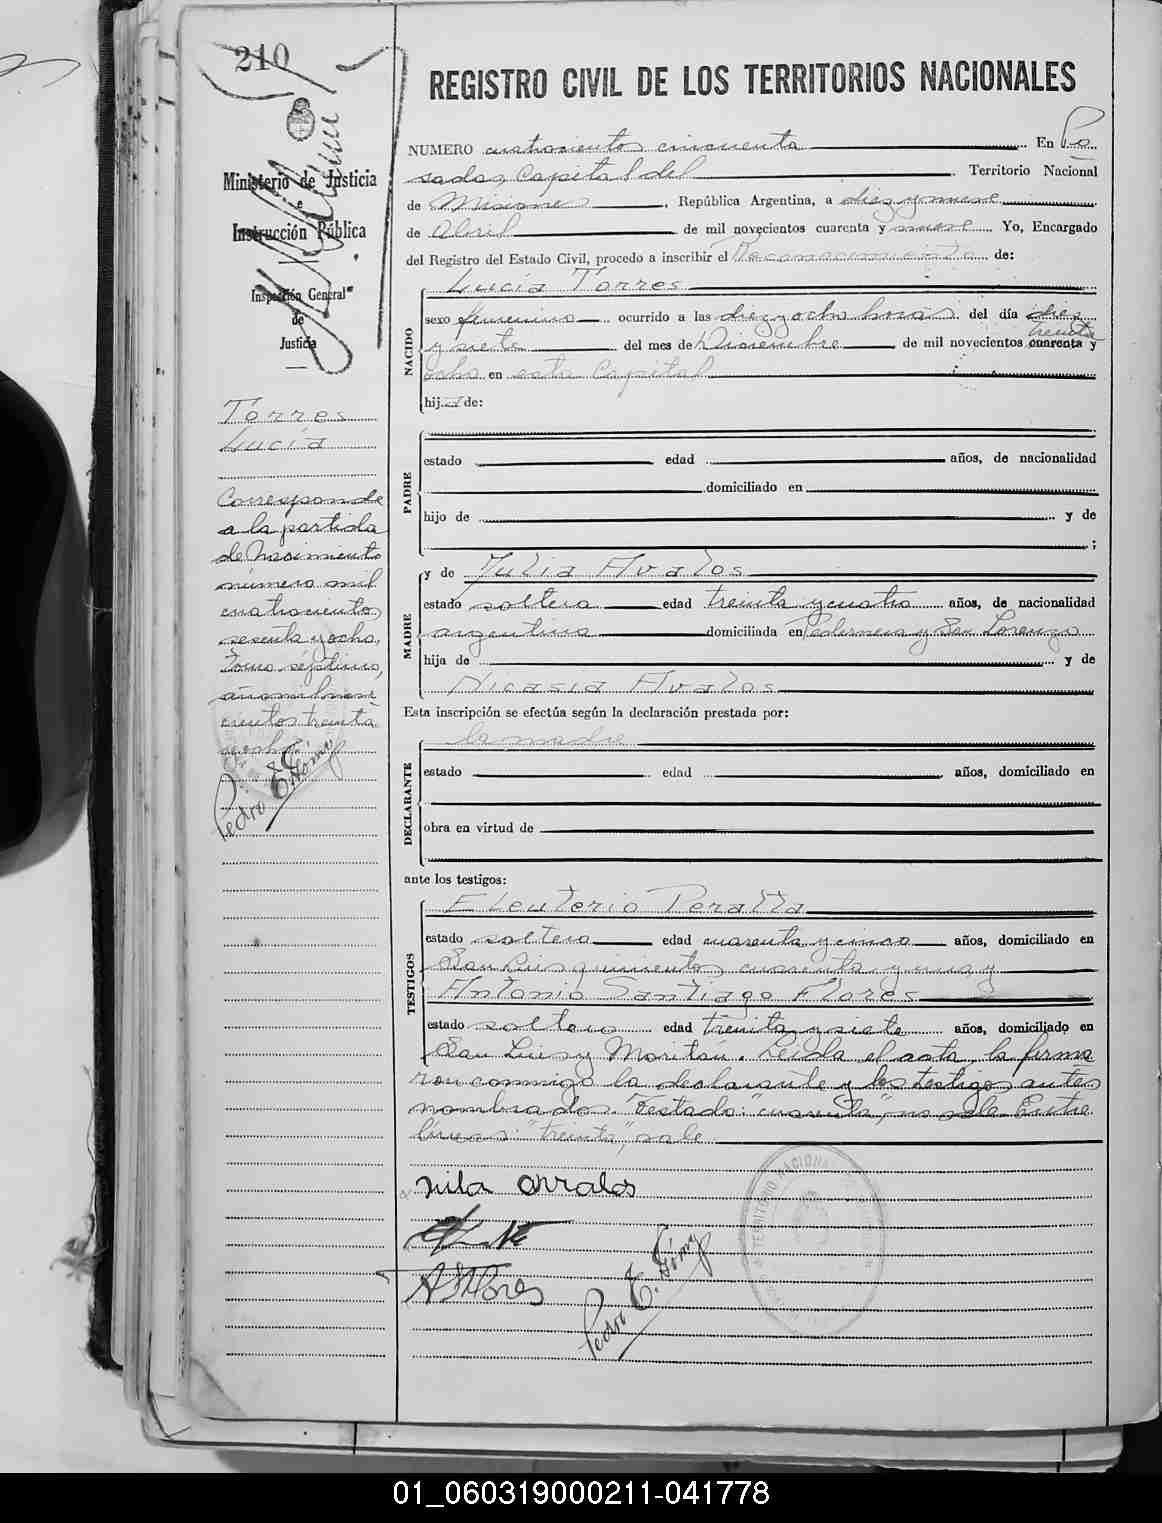 210
Ministerio de Justicia
e
Instrucción Pública
Inspección General
de
Justicia
Torres
Lucía
Corresponde
a la partida
de Nacimiento
número mil
cuatrocientos
sesenta y ocho,
Tomo séptimo,
año mil nove
cientos treinta
y ocho.
Pedro E. Gómez
REGISTRO CIVIL DE LOS TERRITORIOS NACIONALES
NUMERO cuatrocientos cincuenta En Po
sadas, Capital del Territorio Nacional
de Misiones, República Argentina, a diez y nueve
de Abril de mil novecientos cuarenta y nueve Yo, Encargado
del Registro del Estado Civil, procedo a inscribir el Reconocimiento de:
NACIDO
Lucía Torres
sexo femenino ocurrido a las diez y ocho horas del día diez
treinta
y siete del mes de Diciembre de mil novecientos cuarenta y
ocho en esta Capital
hija de:
PADRE
estado edad años, de nacionalidad
domiciliado en
hijo de y de
;
MADRE
y de Julia Avalos
estado soltera edad treinta y cuatro años, de nacionalidad
argentina domiciliada en Pedernera y San Lorenzo
hija de y de
Nicasia Avalos
Esta inscripción se efectúa según la declaración prestada por:
DECLARANTE
la madre
estado edad años, domiciliado en
obra en virtud de
ante los testigos:
TESTIGOS
Eleuterio Peralta
estado soltero edad cuarenta y cinco años, domiciliado en
San Luis quinientos cuarenta y uno, y
Antonio Santiago Flores
estado soltero edad treinta y siete años, domiciliado en
San Luis y Moritán. Leída el acta, la firma
ron conmigo la declarante y los testigos antes
nombrados. Testado: "cuarenta", no vale. Entre
líneas: "treinta", vale
A S Flores
Pedro E. Gómez
01_060319000211-041778